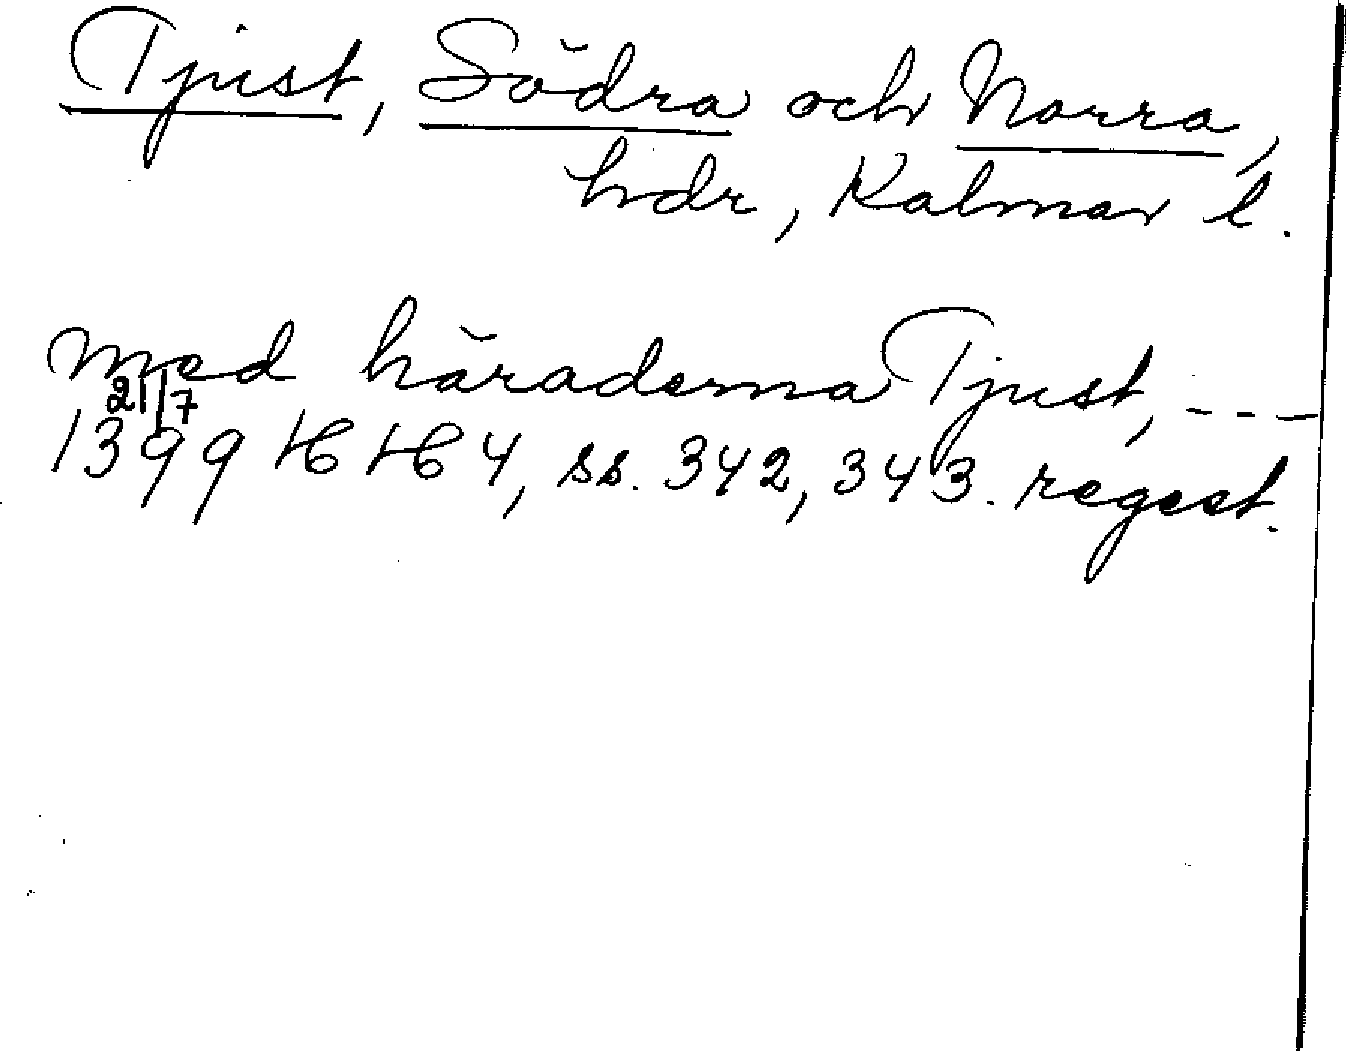 Tjust, Södra och Norra,
hdr, Kalmar l.
med häraderna Tjust, ---
21/7
1399 HH 4, ss. 342, 343. regest.